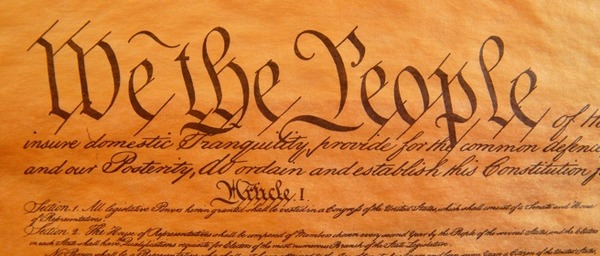 We the People of
insure domestic Tranquility, provide for the common defence
and our Posterity, do ordain and establish this Constitution f
Article. I
Section 1. All legislative Powers herein granted shall be vested in a Congress of the United States, which shall consist of a Senate and House
of Representatives
Section. 2. The House of Representatives shall be composed of Members chosen every second Year by the People of the several States, and the Electors
in each State shall have Qualifications requisite for Electors of the most numerous Branch of the State Legislature.
No Person shall be a Representative who shall